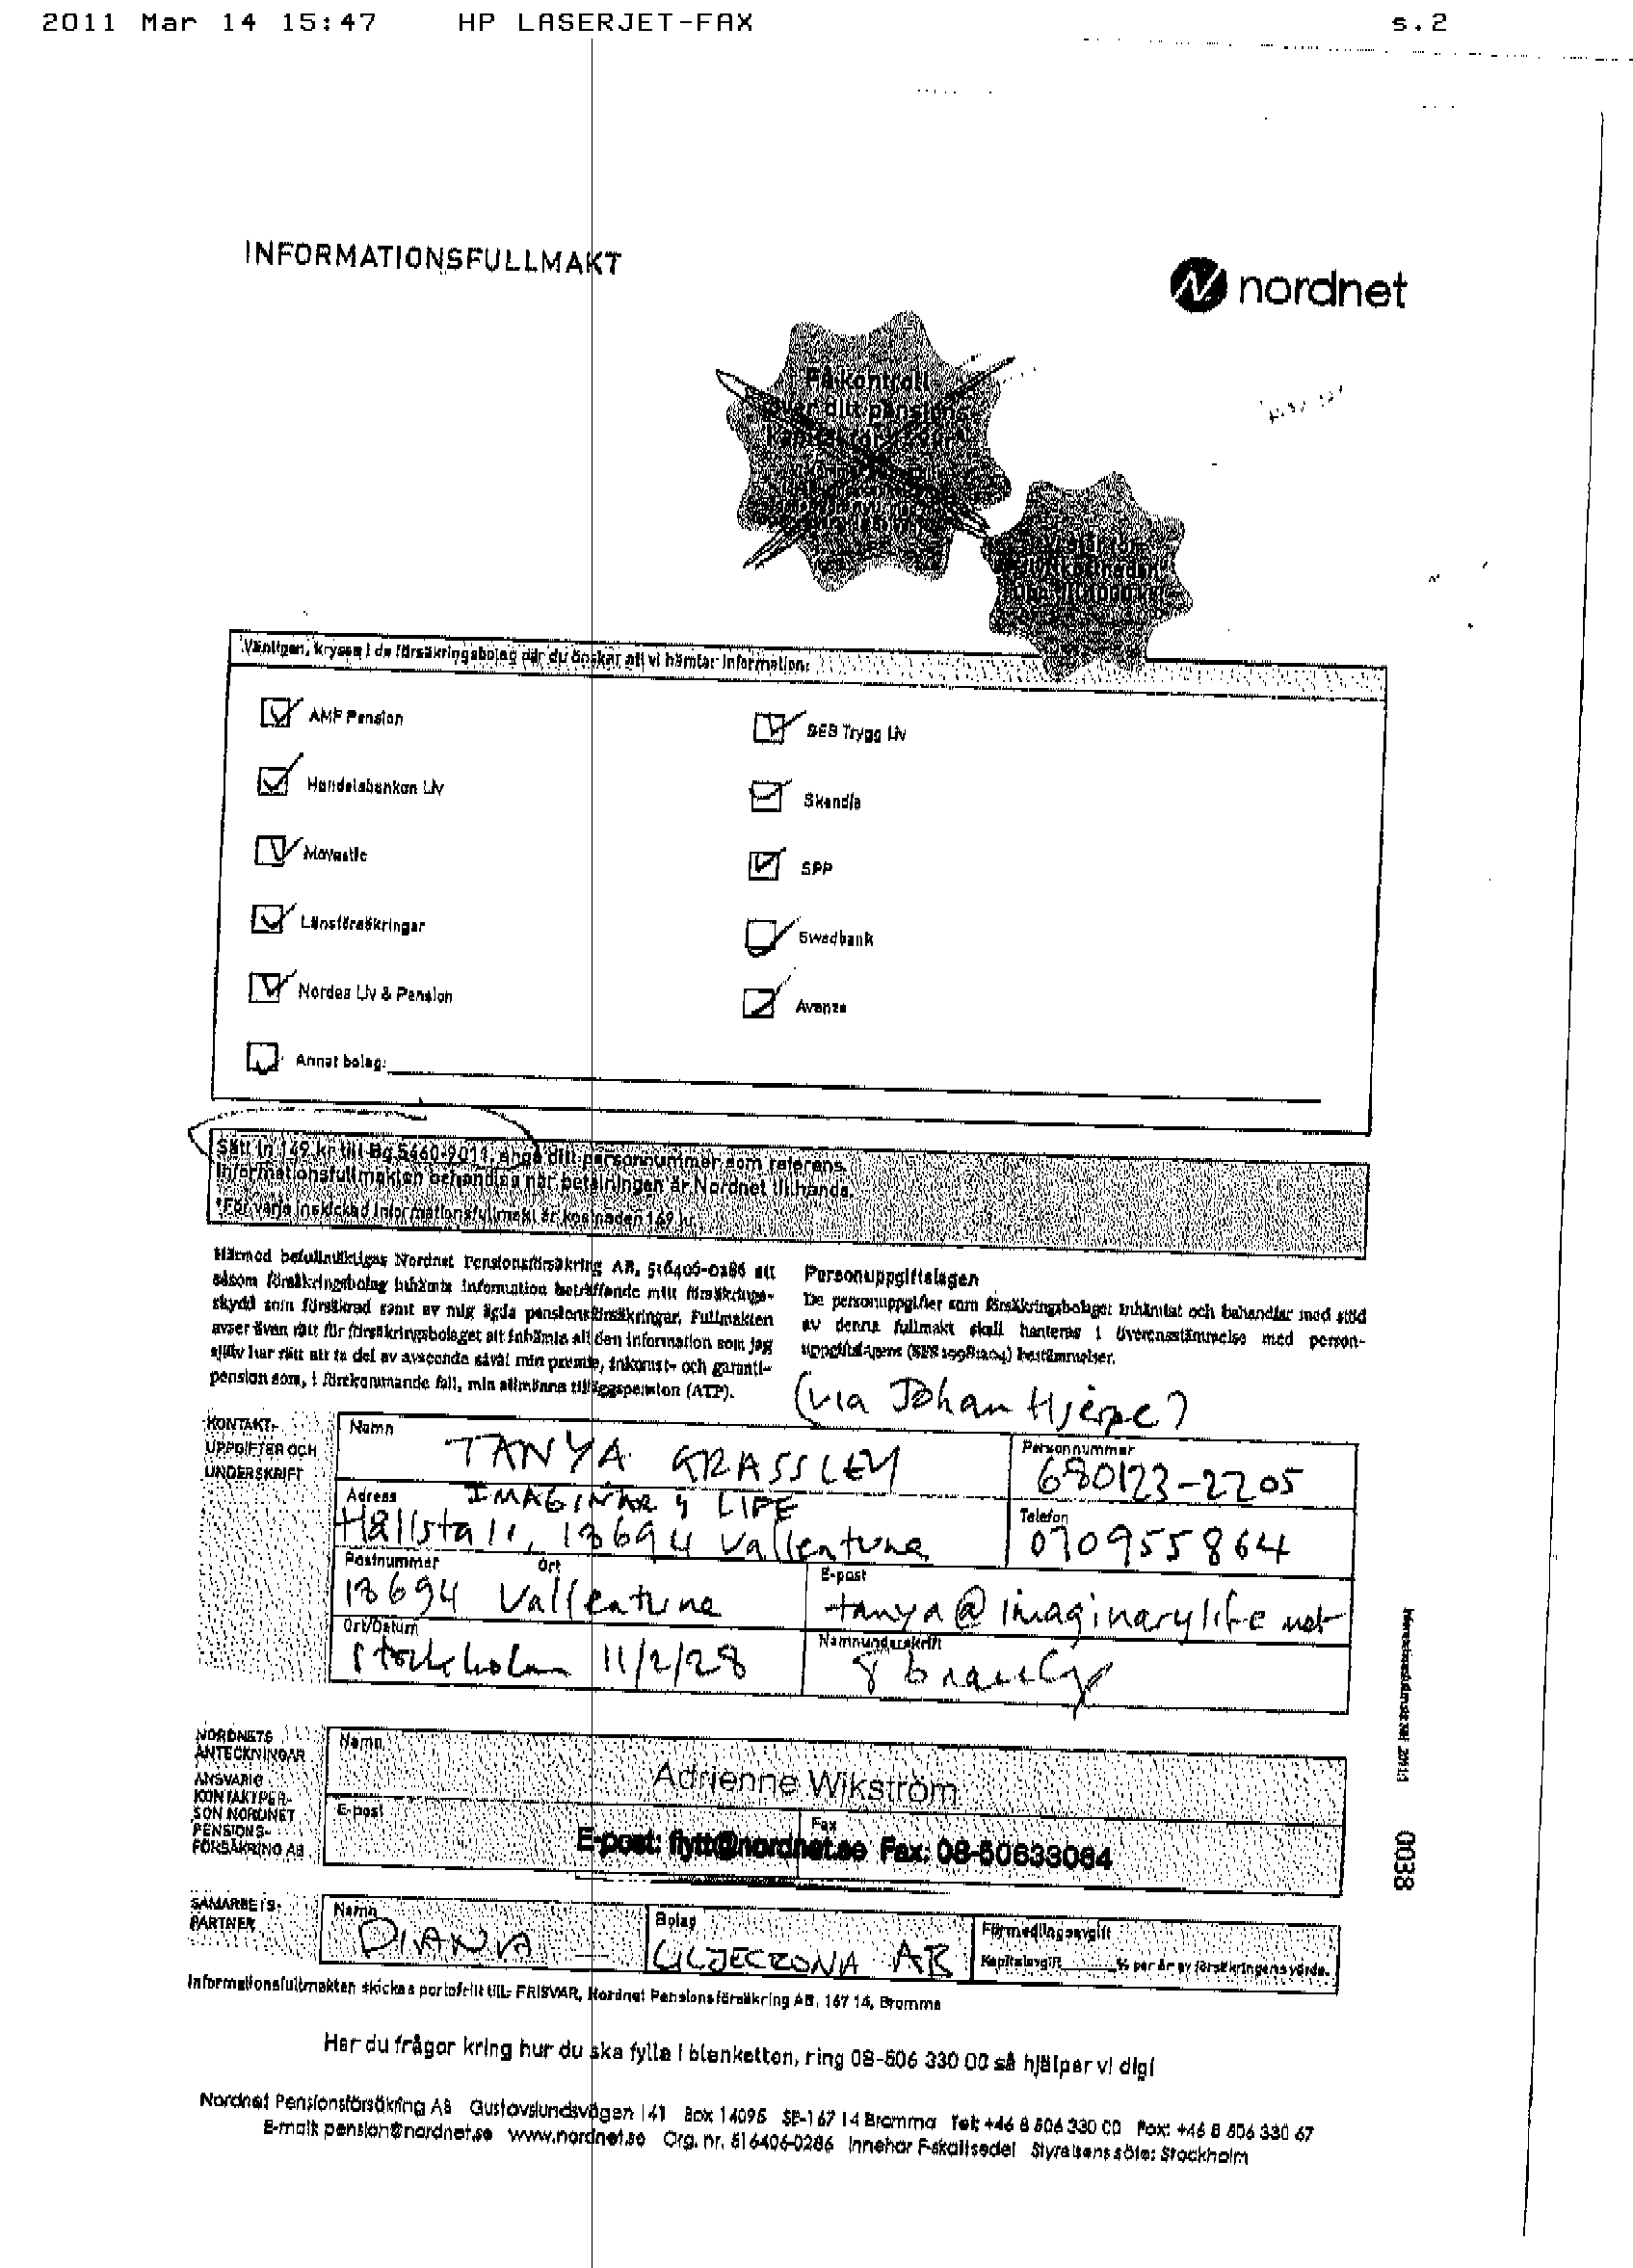 2011 Mar 14 15:47 HP LASERJET-FAX s.2
INFORMATIONSFULLMAKT
nordnet
Få kontroll
över ditt pensions-
Vänligen, kryssa i de försäkringsbolag där du önskar att vi hämtar information:
AMF Pension
SEB Trygg Liv
Handelsbanken Liv
Skandia
Movestic
SPP
Länsförsäkringar
Swedbank
Nordea Liv & Pension
Avanza
Annat bolag:
Sätt in 149 kr till Bg 5460-7011, ange ditt personnummer som referens.
Informationsfullmakten behandlas när betalningen är Nordnet tillhanda.
*För varje inskickad informationsfullmakt är kostnaden 149 kr.
Härmed befullmäktigas Nordnet Pensionsförsäkring AB, 516406-0286 att
såsom försäkringsbolag inhämta information beträffande mitt försäkrings-
skydd som försäkrad samt av mig ägda pensionsförsäkringar. Fullmakten
avser även rätt för försäkringsbolaget att inhämta all den information som jag
själv har rätt att ta del av avseende såväl min premie, inkomst- och garanti-
pension som, i förekommande fall, min allmänna tilläggspension (ATP).
Personuppgiftslagen
De personuppgifter som försäkringsbolaget inhämtat och behandlar med stöd
av denna fullmakt skall hanteras i överensstämmelse med person-
uppgiftslagens (SFS 1998:204) bestämmelser.
(via Johan Hjerpe)
KONTAKT-
UPPGIFTER OCH
UNDERSKRIFT
Namn
TANYA GRASSLEY
Personnummer
680123-2205
IMAGINARY LIFE
Adress
Hållsta 11, 18694 Vallentuna
Telefon
0709555864
Postnummer Ort
18694 Vallentuna
E-post
tanya@imaginarylife.net
Ort/Datum
Stockholm 11/2/28
Namnunderskrift
NORDNETS
ANTECKNINGAR
ANSVARIG
KONTAKTPER-
SON NORDNET
PENSIONS-
FÖRSÄKRING AB
Namn
Adrienne Wikström
E-post
Fax
E-post: flytt@nordnet.se Fax: 08-50633064
0038
SAMARBETS-
PARTNER
Namn
DIANA
Bolag
LILJECRONA AB
Förmedlingsavgift
Kapitalavgift % per år av försäkringens värde.
Informationsfullmakten skickas portofritt till: FRISVAR, Nordnet Pensionsförsäkring AB, 167 14, Bromma
Har du frågor kring hur du ska fylla i blanketten, ring 08-506 330 00 så hjälper vi dig!
Nordnet Pensionsförsäkring AB Gustavslundsvägen 141 Box 14095 SE-167 14 Bromma Tel: +46 8 506 330 00 Fax: +46 8 506 330 67
E-mail: pension@nordnet.se www.nordnet.se Org. nr. 516406-0286 Innehar F-skattsedel Styrelsens säte: Stockholm